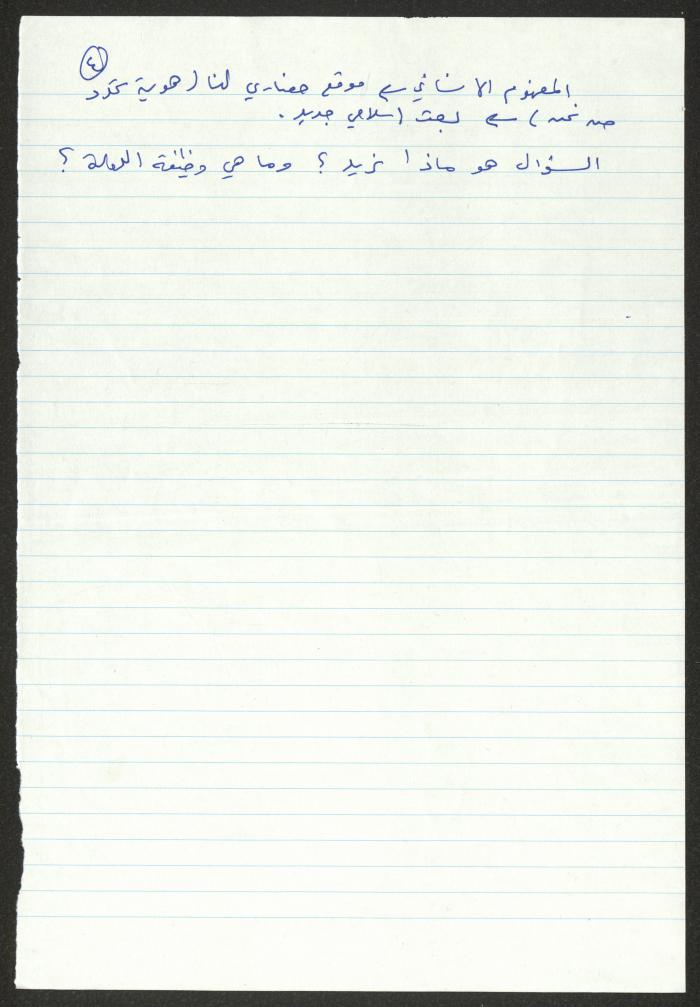 ٤
المفهوم الانساني ← موقع حضاري لنا (هوية تحدد
من نحن) ← لبعث إسلامي جديد .
السؤال هو ماذا نريد ؟ وما هي وظيفة الدولة ؟